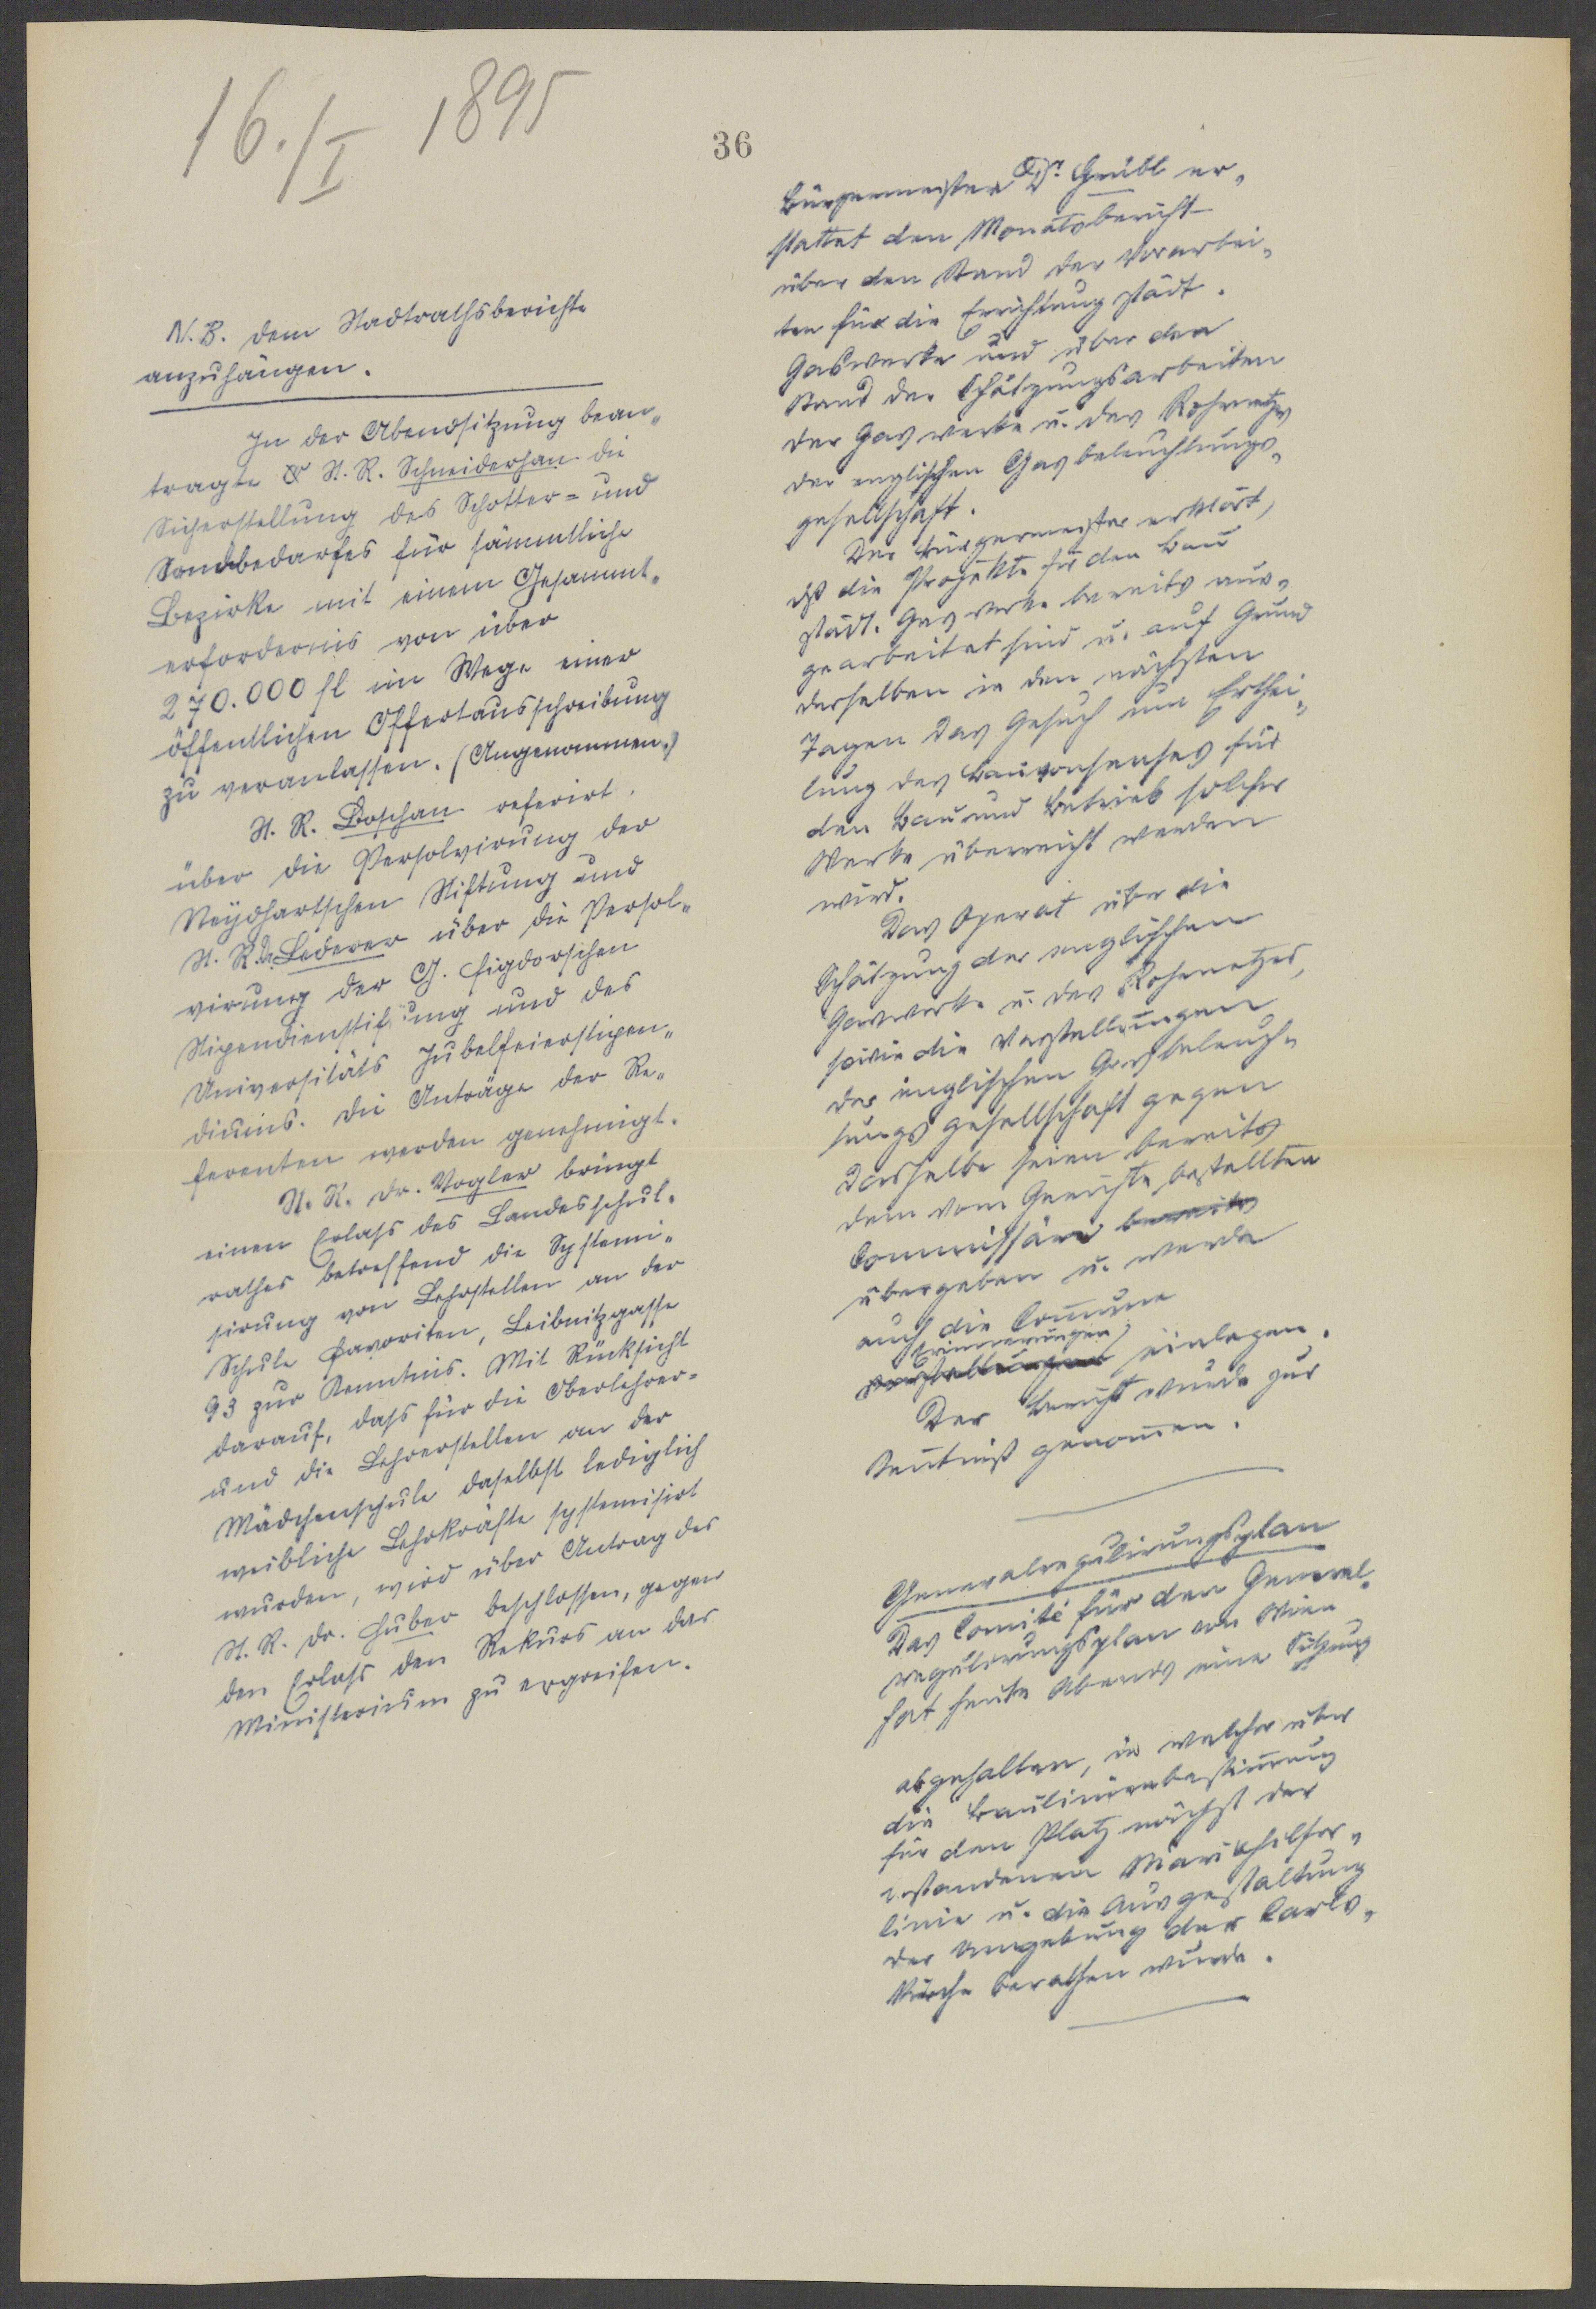 16./I 1895
36
N.B. dem Stadtrathsberichte
anzuhängen.
In der Abendsitzung bean„
tragte St. R. Schneiderhan die
Sicherstellung des Schotter= und
Sandbedarfes für sämmtliche
Bezirke mit einem Gesammt„
erfordernis von über
270.000 fl im Wege einer
öffentlichen Offertausschreibung
zu veranlassen. (Angenommen.)
St. R. Boschan referirt
über die Persolvirung der
Neydhartschen Stiftung und
St. R. Dr. Lederer über die Persol„
virung der G. Figdorschen
Stipendienstiftung und des
Universitäts Jubelfeierstipen„
diums. Die Anträge der Re„
ferenten werden genehmigt.
St. R. Dr. Vogler bringt
einen Erlaß des Landesschul„
rathes betreffend die Systemi„
sirung von Lehrstellen an der
Schule Favoriten, Leibnitzgasse
93 zur Kenntnis. Mit Rücksicht
darauf, daß für die Oberlehrer=
und die Lehrerstellen an der
Mädchenschule daselbst lediglich
weibliche Lehrkräfte systemisirt
wurden, wird über Antrag des
St. R. Dr. Huber beschlossen, gegen
den Erlaß den Rekurs an das
Ministerium zu ergreifen.
Bürgermeister Dr. Grübl er„
stattet den Monatsbericht
über den Stand der Vorarbei„
ten für die Errichtung städt.
Gaswerke und über den
Stand der Schätzungsarbeiten
der Gaswerke u. des Rohrnetzes
der englischen Gasbeleuchtungs„
gesellschaft.
Der Bürgermeister erklärt,
daß die Projekte für den Bau
städt. Gaswerke bereits aus„
gearbeitet sind u. auf Grund
derselben in den nächsten
Tagen das Gesuch um Erthei„
lung des Bauconsenses für
den Bau und Betrieb solcher
Werke überreicht werden
wird.
Das Operat über die
Schätzung der englischen
Gaswerke u. des Rohrnetzes,
sowie die Vorstellungen
der englischen Gasbeleuch„
tungsgesellschaft gegen
dasselbe seien bereits
dem vom Gerichte bestellten
Commissär bereits
übergeben u. werde
auch die Commune
Erinnerungen
Vorstellungen einlegen.
Der Bericht wurde zur
Kentniß genommen.
Generalregulirungsplan
Das Comité für den General„
regulirungsplan von Wien
hat heute Abends eine Sitzung
abgehalten, in welcher über
die Baulinienbestimmung
für den Platz nächst der
bestandenen Mariahilfer„
linie u. die Ausgestaltung
der Umgebung der Carls„
kirche berathen wurde.